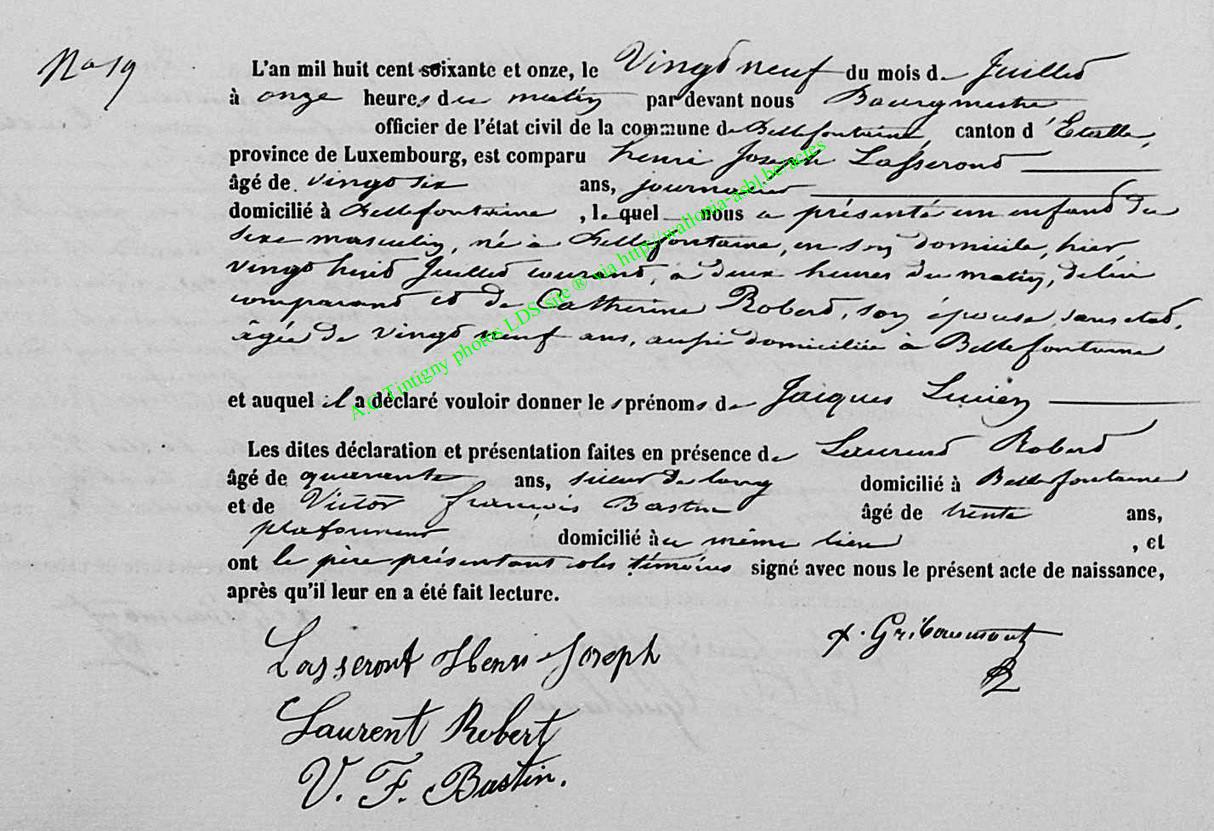 No 19
L'an mil huit cent soixante et onze, le Vingt neuf du mois de Juillet
à onze heures du matin par devant nous Bourgmestre
officier de l'état civil de la commune de Bellefontaine, canton d'Etalle,
province de Luxembourg, est comparu henri Joseph Lasseront
âgé de vingt six ans, journalier
domicilié à Bellefontaine, lequel nous a présenté un enfant du
sexe masculin, né à Bellefontaine, en son domicile, hier,
vingt huit Juillet courant, à deux heures du matin, de lui
comparant et de Catherine Robert, son épouse, sans état,
âgée de vingt neuf ans, aussi domiciliée à Bellefontaine
et auquel il a déclaré vouloir donner les prénoms de Jacques Lucien
Les dites déclaration et présentation faites en présence de Laurent Robert
âgé de quarante ans, scieur de long domicilié à Bellefontaine
et de Victor françois Bastin âgé de trente ans,
plafonneur domicilié à ce même lieu, et
ont le père présentant et les témoins signé avec nous le présent acte de naissance,
après qu'il leur en a été fait lecture.
Lasseront Henri Joseph
Gribaumont
Laurent Robert
V. F. Bastin.
A.C Tintigny photos LDS/sprc ® via http://wallonia-asbl.be/actes